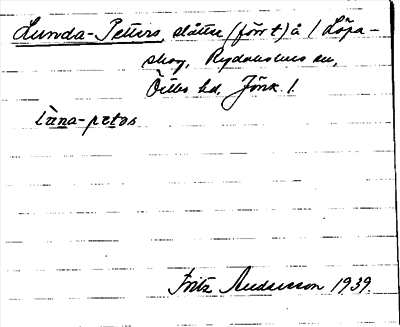 Lunda-Petters, slåtte (förr t) å / Löpa-
skog, Rydaholms sn,
Östbo hd, Jönk. l.
læna-petəs
Fritz Andersson 1939.